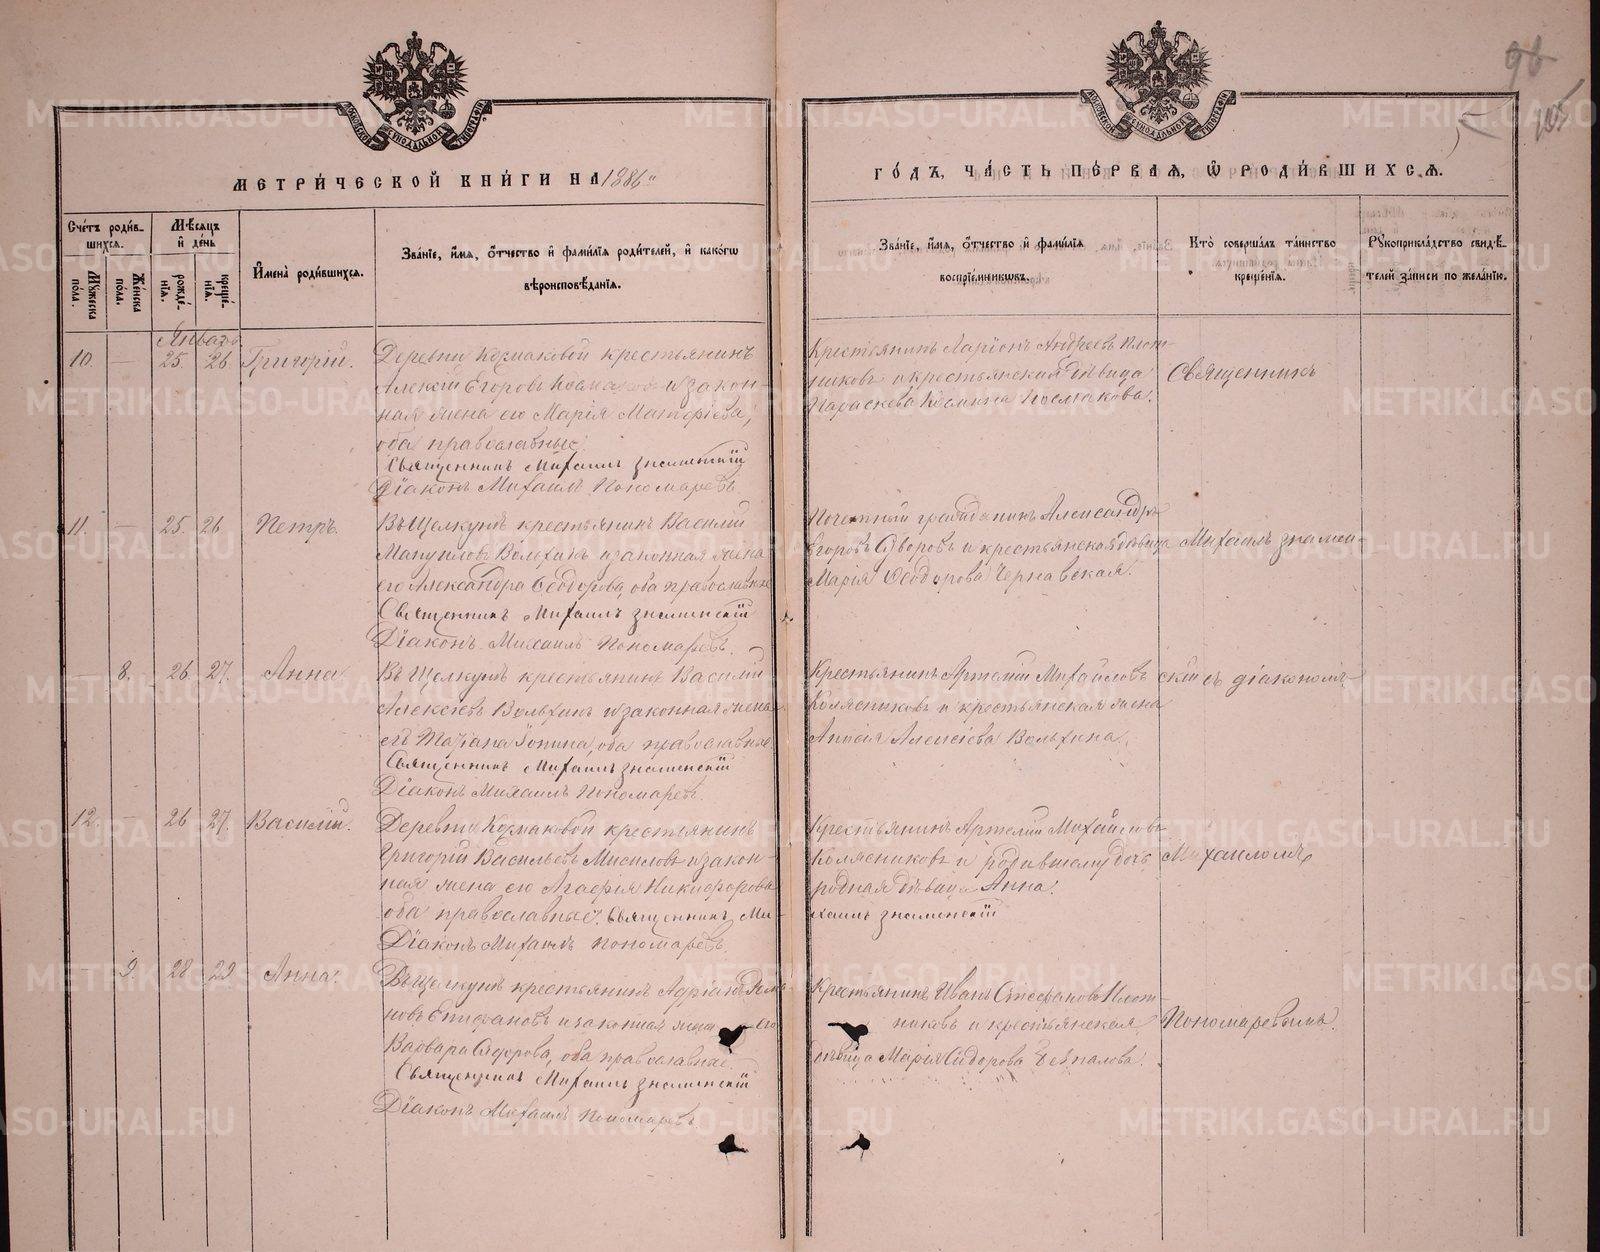 96
105
5
МЕТРИ́ЧЕСКОЙ КНИ́ГИ НА 1886
ГО́ДЪ, ЧА́СТЬ ПЕ́РВАѦ, Ѡ҆ РОДИ́ВШИХСѦ.
Сче́тъ роди́в-
шихсѧ.
Му́жеска
по́ла.
Же́нска
по́ла.
Мѣ́сѧцъ
и҆ де́нь
рожде́-
нїѧ.
креще́-
нїѧ.
И҆мена̀ роди́вшихсѧ.
Зва́нїе, и҆́мѧ, ѻ҆́тчество и҆ фами́лїѧ роди́телей, и҆ како́гѡ
вѣроисповѣ́данїѧ.
Зва́нїе, и҆́мѧ, ѻ҆́тчество и҆ фами́лїѧ
воспрїе́мникѡвъ.
Кто̀ соверша́лъ та́инство
креще́нїѧ.
Рꙋкоприкла́дство свидѣ́-
телей за́писи по жела́нїю.
Январь
10. — 25. 26 Григорій.
Деревни Космаковой крестьянинъ
Алексій Егоровъ и закон-
ная жена его Марія
оба православные.
Священникъ Михаилъ Знаменскій
Діаконъ Михаилъ Пономаревъ
Крестьянинъ Ларіонъ Андреевъ Плот-
никовъ и крестьянская дѣвица
Параскева Космина
Священникъ
11. — 25. 26 Петръ.
Въ Щелкунѣ крестьянинъ Василій
Мануиловъ Вольхинъ и законная жена
его Александра Ѳеодорова, оба православные
Священникъ Михаилъ Знаменскій
Діаконъ Михаилъ Пономаревъ.
Почетный гражданинъ Александръ
Егоровъ и крестьянская дѣвица
Марія Ѳеодорова Чернавская.
Михаилъ Знамен-
— 8. 26 27. Анна
Въ Щелкунѣ крестьянинъ Василій
Алексіевъ Вольхинъ и законная жена
его Татіана Іонина, оба православные
Священникъ Михаилъ Знаменскій
Діаконъ Михаилъ Пономаревъ.
Крестьянинъ Артемій Михайловъ
Колясниковъ и крестьянская жена
Анисія Алексіева Вольхина.
скій съ діакономъ
12. — 26 27. Василій.
Деревни Космаковой крестьянинъ
Григорій Васильевъ Мисиловъ и закон-
ная жена его Агафія Никифорова
оба православные. Священникъ Ми-
Діаконъ Михаилъ Пономаревъ
Крестьянинъ Артемій Михайловъ
Колясниковъ и родившему дочь
родная дѣвица Анна.
хаилъ Знаменскій
Михаиломъ
9. 28 29 Анна.
Въ Щелкунѣ крестьянинъ Адріанъ
новъ Епифановъ и законная жена его
Варвара Сидорова, оба православные.
Священникъ Михаилъ Знаменскій
Діаконъ Михаилъ Пономаревъ
Крестьянинъ Иванъ Стефановъ Плот-
никовъ и крестьянская
дѣвица Марія Сидорова
Пономаревымъ.